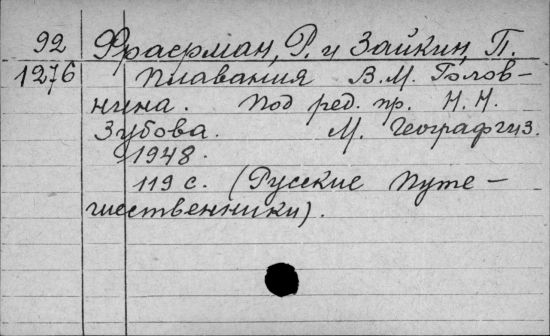 92 Фраерман, Р. и Зайкин, П.
1276 Плавания В.М. Голов-
нина. Под ред. пр. Н.Н.
Зубова. М. Географгиз.
1948.
119 с. (Русские путе-
шественники).